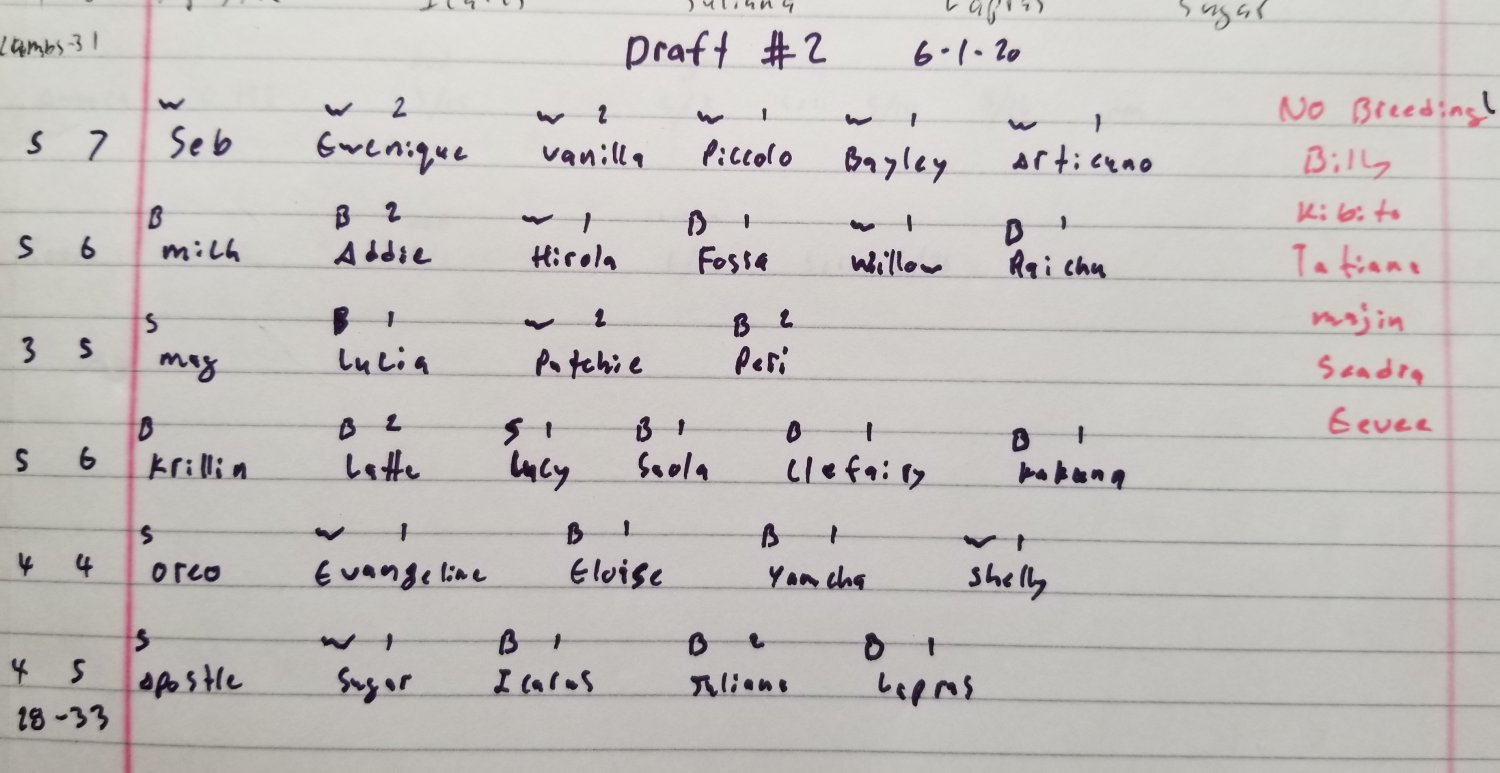 Icarus Juliana Lapras Sugar
Lambs-31
Draft #2 6-1-20
W W 2 W 2 W 1 W 1 W 1 No Breeding!
5 7 Seb Gwenique Vanilla Piccolo Bayley Articuno Billy
B B 2 W 1 B 1 W 1 B 1 Kibito
5 6 Mich Addie Hirola Fossa Willow Raichu Tatiana
S B 1 W 2 B 2 Majin
3 5 Mag Lucia Patchie Peri Saadra
B B 2 S 1 B 1 B 1 B 1 Eevee
5 6 Krillin Latte Lucy Saola Clefairy Kakuna
S W 1 B 1 B 1 W 1
4 4 Oreo Evangeline Eloise Yamcha Shelly
S W 1 B 1 B 2 B 1
4 5 Apostle Sugar Icarus Juliana Lapras
28-33